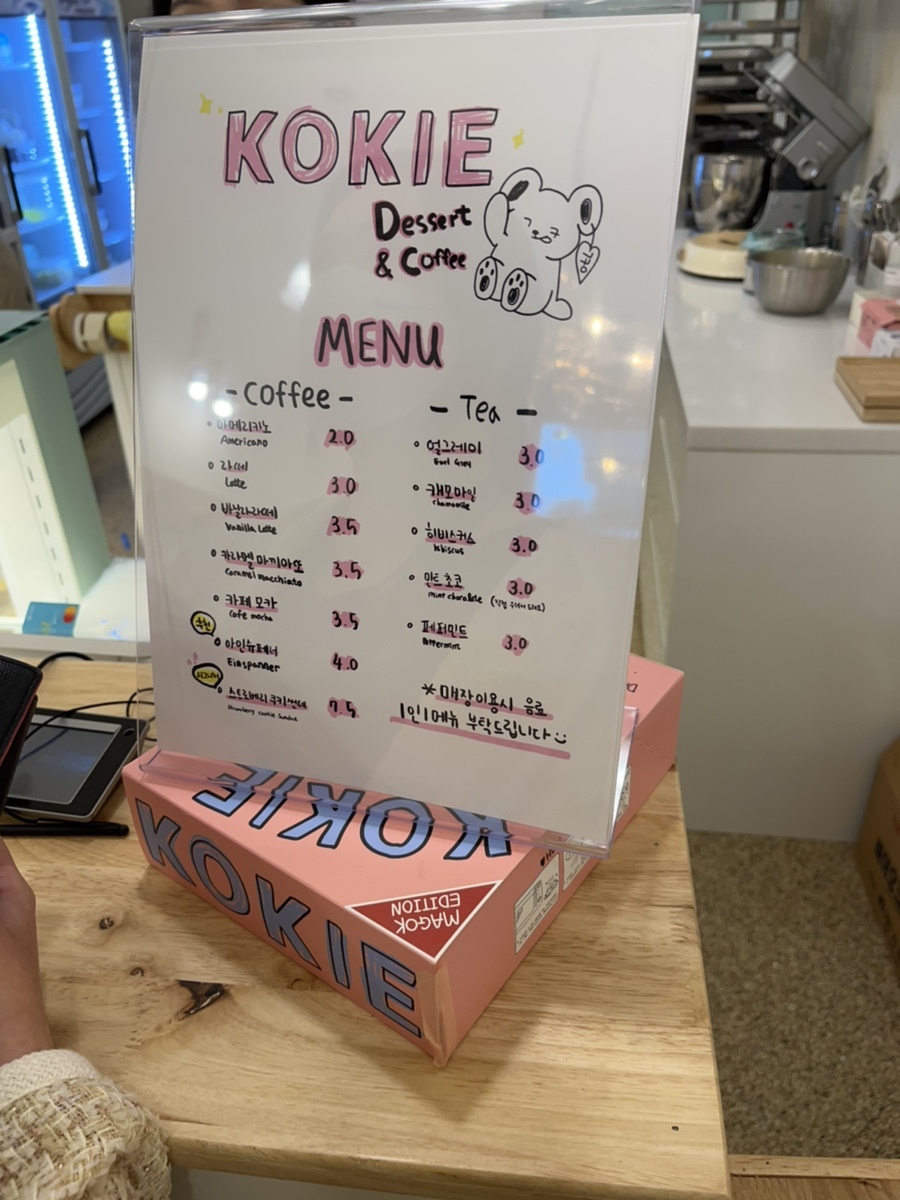 KOKIE
Dessert
& Coffee
MENU
- Coffee -
아메리카노 2.0
Americano
라떼 3.0
Latte
바닐라라떼 3.5
Vanilla Latte
카라멜 마키아또 3.5
Caramel Macchiato
카페 모카 3.5
Cafe mocha
추천
아인슈페너 4.0
Einspanner
스트로베리 쿠키썬데 7.5
Strawberry cookie Sundae
- Tea -
얼그레이 3.0
Earl Grey
캐모마일 3.0
chamomile
히비스커스 3.0
민트초코 3.0
mint chocolate
페퍼민트 3.0
Peppermint
* 매장이용시 음료
1인1메뉴 부탁드립니다
KOKIE
KOKIE
MAGOK
EDITION